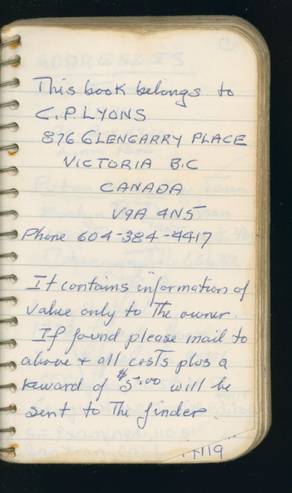 This book belongs to
C.P LYONS
876 GLENGARRY PLACE
VICTORIA B.C
CANADA
V9A 4N5
Phone 604-384-4417
It contains information of
value only to the owner.
If found please mail to
above + all costs plus a
reward of $5.00 will be
sent to the finder.